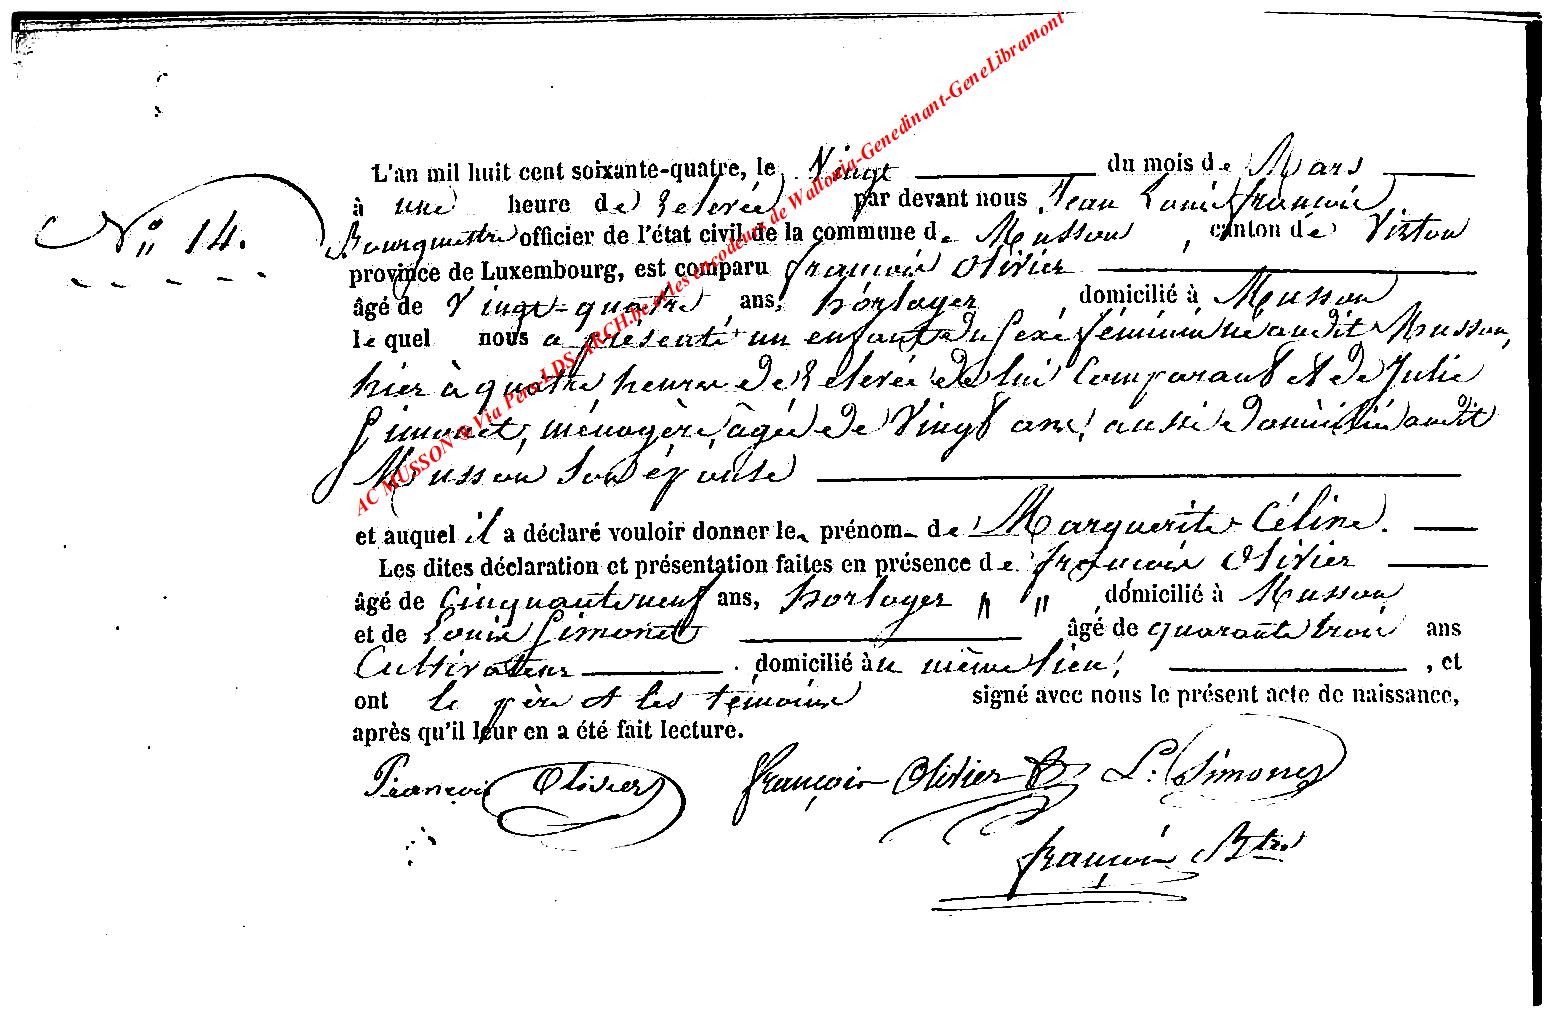 L'an mil huit cent soixante-quatre, le Vingt du mois de Mars
à une heure de Relevée par devant nous Jean Louis françois,
N° 14.
Bourgmestre officier de l'état civil de la commune de Musson, canton de Virton
province de Luxembourg, est comparu françois Olivier
âgé de Vingt-quatre ans, horloger domicilié à Musson
lequel nous a présenté un enfant du sexe féminin né audit Musson,
hier à quatre heures de Relevée de lui Comparant et de Julie
Simonet, ménagère, âgée de Vingt ans, aussi domicilié audit
Musson son épouse
et auquel il a déclaré vouloir donner les prénom de Marguerite Céline.
Les dites déclaration et présentation faites en présence de françois Olivier
âgé de Cinquante neuf ans, horloger " " domicilié à Musson
et de Louis Simonet âgé de quarante trois ans
Cultivateur domicilié au même lieu, , et
ont le père et les témoins signé avec nous le présent acte de naissance,
après qu'il leur en a été fait lecture.
François Olivier françois Olivier L: Simonet
françois Btre
AC MUSSON & Via Pere-LDS-ARCH.be et les encodeurs de Wallonia-Genedinant-GeneLibramont